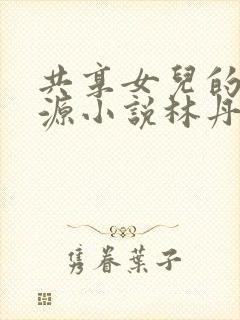 共享女兒的
源小說林丹
隽眷葉子